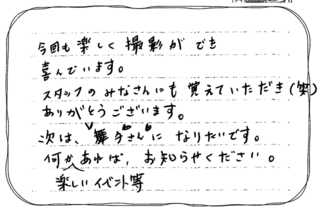 今回も楽しく撮影ができ
喜んでいます。
スタッフのみなさんにも覚えていただき(笑)
ありがとうございます。
次は、舞子さんになりたいです。
何かあれば、お知らせください。
楽しいイベント等